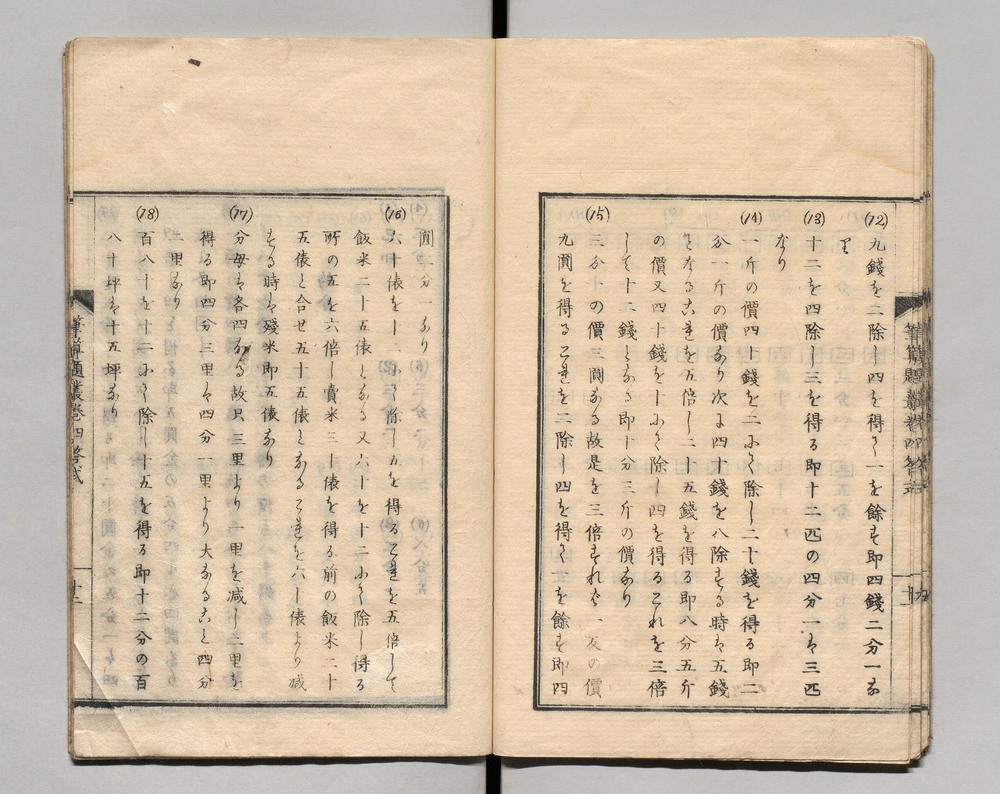 (12)
九錢を二除し四を得る一を餘す即四錢二分一な
り
(13)
十二を四除し三を得る即十二匹の四分一ハ三匹
なり
(14)
一斤の價四十錢を二にて除し二十錢を得る即二
分一斤の價なり次に四十錢を八除する時ハ五錢
となるこれを五倍し二十五錢を得る即八分五斤
の價又四十錢を十にて除し四を得るこれを三倍
して十二錢となる即十分三斤の價なり
(15)
三分十の價三圓なる故是を三倍すれハ一反の價
九圓を得るこれを二除し四を得て一を餘す即四
圓二分一なり
(16)
六十俵を十二にて除し五を得るこれを五倍して
飯米二十五俵となる又六十を十二にて除し得る
所の五を六倍し賣米三十俵を得る前の飯米二十
五俵と合せ五十五俵となるこれを六十俵より減
する時ハ殘米即五俵なり
(17)
分母ハ各四なる故只三里より一里を減し二里を
得る即四分三里ハ四分一里より大なること四分
二里なり
(18)
百八十を十二にて除し十五を得る即十二分の百
八十坪ハ十五坪なり
筆算題叢卷四答式
十二